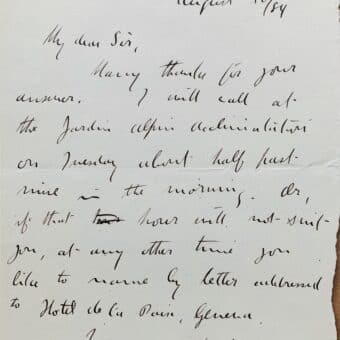 August /84
My dear Sir,
Many thanks for your
answer. I will call at
the Jardin alpin d'acclimatation
on Tuesday about half past
nine in the morning. Or,
if that hour will not suit
you, at any other time you
like to name by letter addressed
to Hotel de la Paix, Geneva.
I